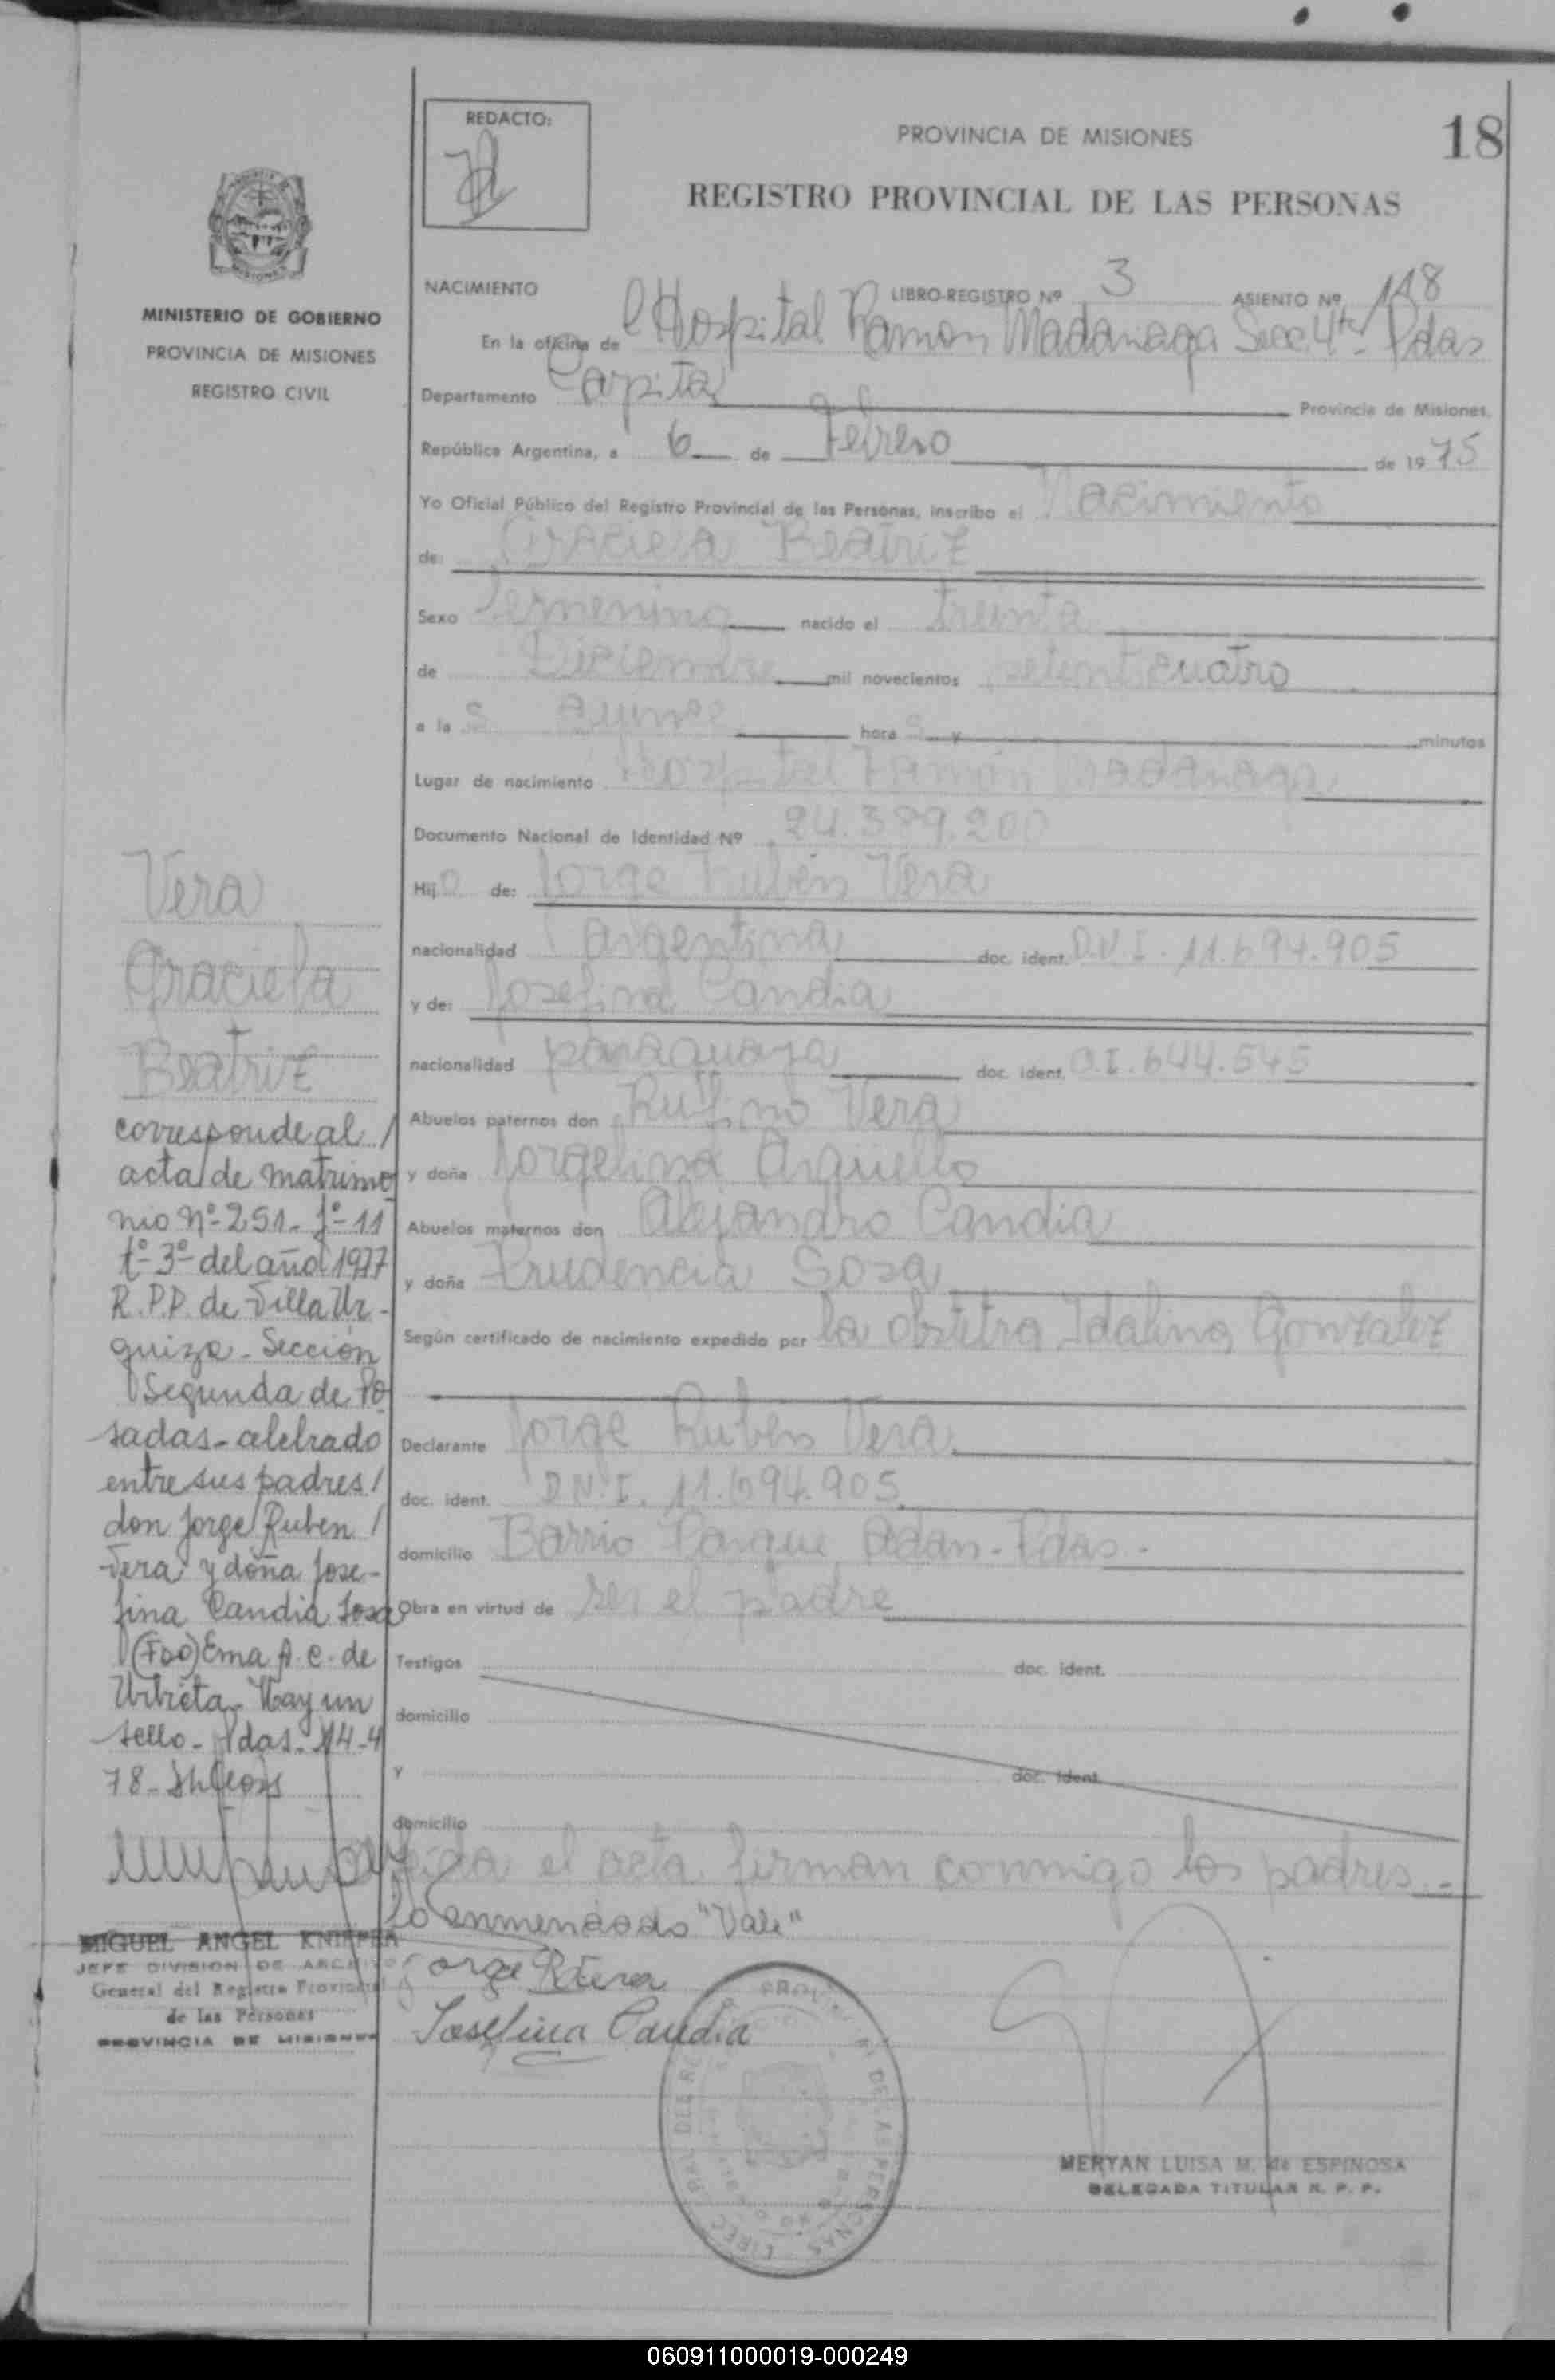 18
REDACTO:
PROVINCIA DE MISIONES
REGISTRO PROVINCIAL DE LAS PERSONAS
MINISTERIO DE GOBIERNO
PROVINCIA DE MISIONES
REGISTRO CIVIL
NACIMIENTO
LIBRO-REGISTRO Nº 3 ASIENTO Nº 118
En la oficina de l Hospital Ramon Madariaga Secc. 4ta Pdas
Departamento Capital Provincia de Misiones,
República Argentina, a 6 de Febrero de 1975
Yo Oficial Público del Registro Provincial de las Personas, inscribo el Nacimiento
de: Graciela Beatriz
Sexo femenino nacido el treinta
de Diciembre mil novecientos setenticuatro
a la s quince hora s y minutos
Lugar de nacimiento Hospital Ramón Madariaga
Documento Nacional de Identidad Nº 24.389.200
Hijo de: Jorge Rubén Vera
nacionalidad argentina doc. ident. D.N.I. 11.694.905
y de: Josefina Candia
nacionalidad paraguaya doc. ident. C.I. 644.545
Abuelos paternos don Rufino Vera
y doña Jorgelina Arguello
Abuelos maternos don Alejandro Candia
y doña Prudencia Sosa
Según certificado de nacimiento expedido por la obstetra Idalina Gonzalez
Declarante Jorge Rubén Vera
doc. ident. D.N.I. 11.694.905
domicilio Barrio Parque Adam - Pdas.-
Obra en virtud de ser el padre
Testigos doc. ident.
domicilio
y doc. ident.
domicilio
leida el acta firman conmigo los padres.-
Lo enmendado "Vale"
Jorge R Vera
Josefina Candia
MERYAN LUISA M. de ESPINOSA
DELEGADA TITULAR R. P. P.
Vera
Graciela
Beatriz
corresponde al /
acta de matrimo
nio Nº-251- fº-11
tº-3º-del año 1977
R.P.P. de Villa Ur-
quiza - Sección
Segunda de Po
sadas - celebrado
entre sus padres /
don Jorge Ruben /
Vera y doña Jose-
fina Candia Sosa
(Fdo) Ema A. C. de
Urbieta - Hay un
sello - Pdas. 14-4
78-
MIGUEL ANGEL KNIPPER
JEFE DIVISION DE ARCHIVO
General del Registro Provincial
de las Personas
PROVINCIA DE MISIONES
060911000019-000249